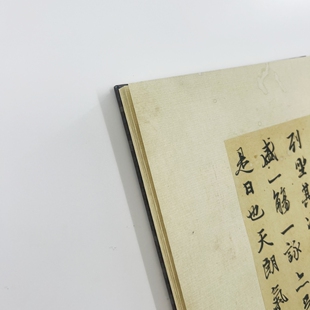 列坐其
盛一觴一詠亦
是日也天朗氣